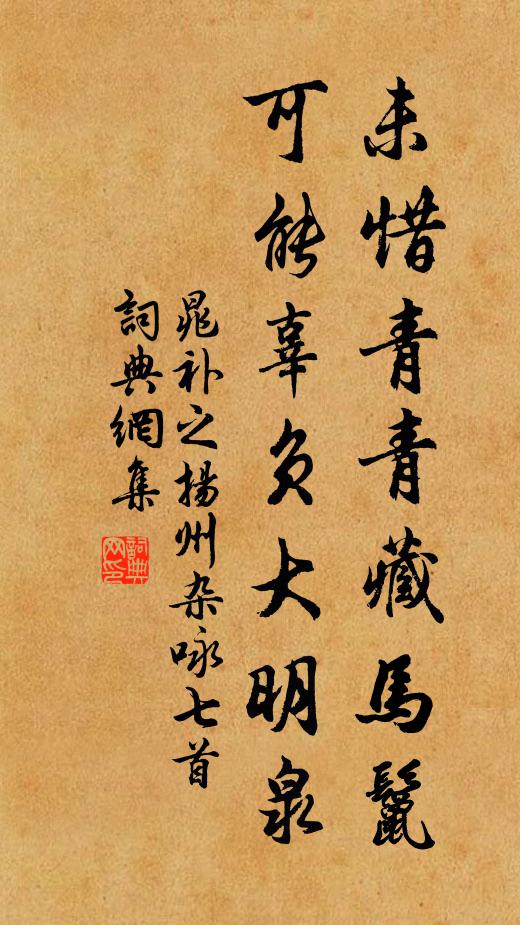 未惜青青藏馬鬛
可能辜负大明泉
晁补之揚州杂咏七首
詞典網集
詞典网印